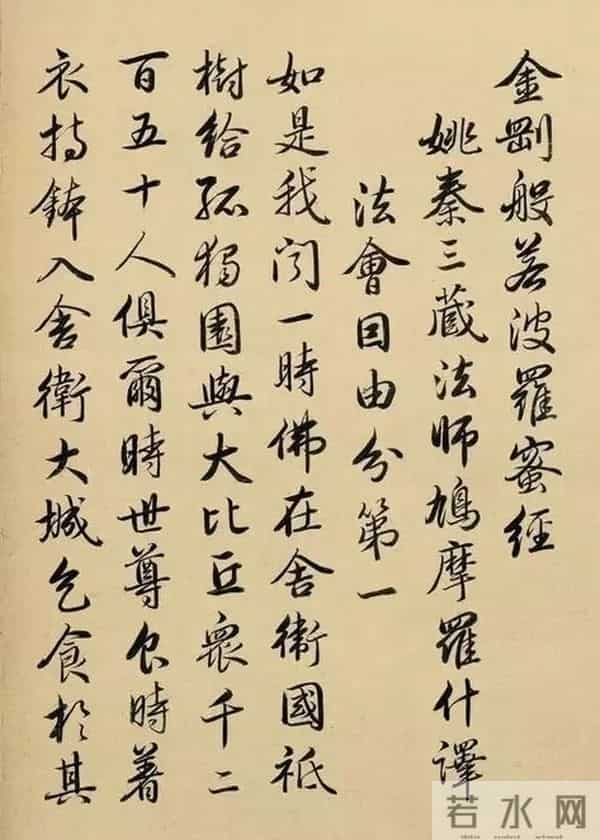 金剛般若波羅蜜經
姚秦三藏法師鳩摩羅什譯
法會因由分第一
如是我聞一時佛在舍衛國祇
樹給孤獨園與大比丘衆千二
百五十人俱爾時世尊食時著
衣持鉢入舍衛大城乞食於其
若水网